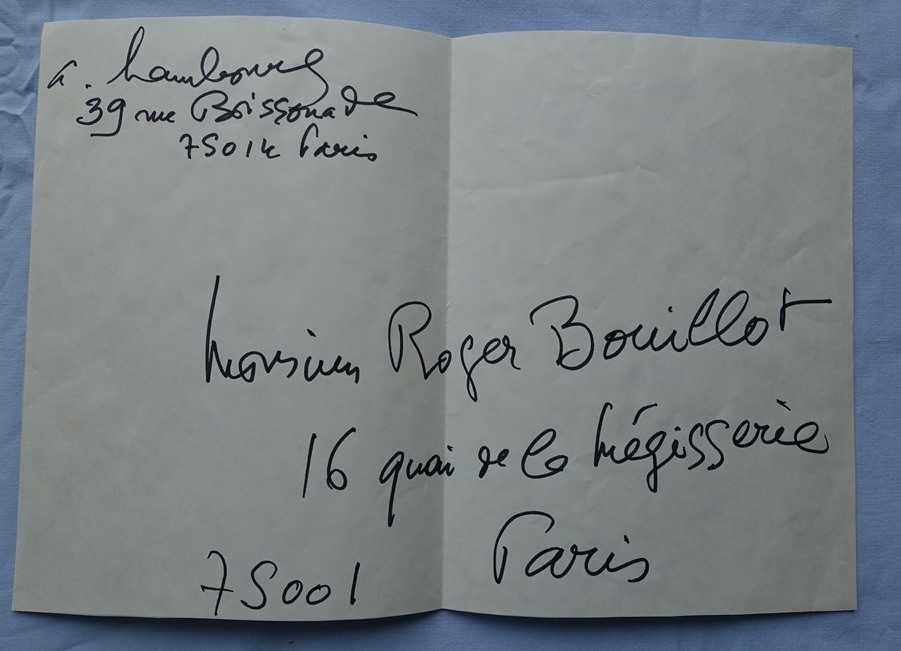 A. Hambourg
39 rue Boissonade
75014 Paris
Monsieur Roger Bouillot
16 quai de la Mégisserie
75001 Paris